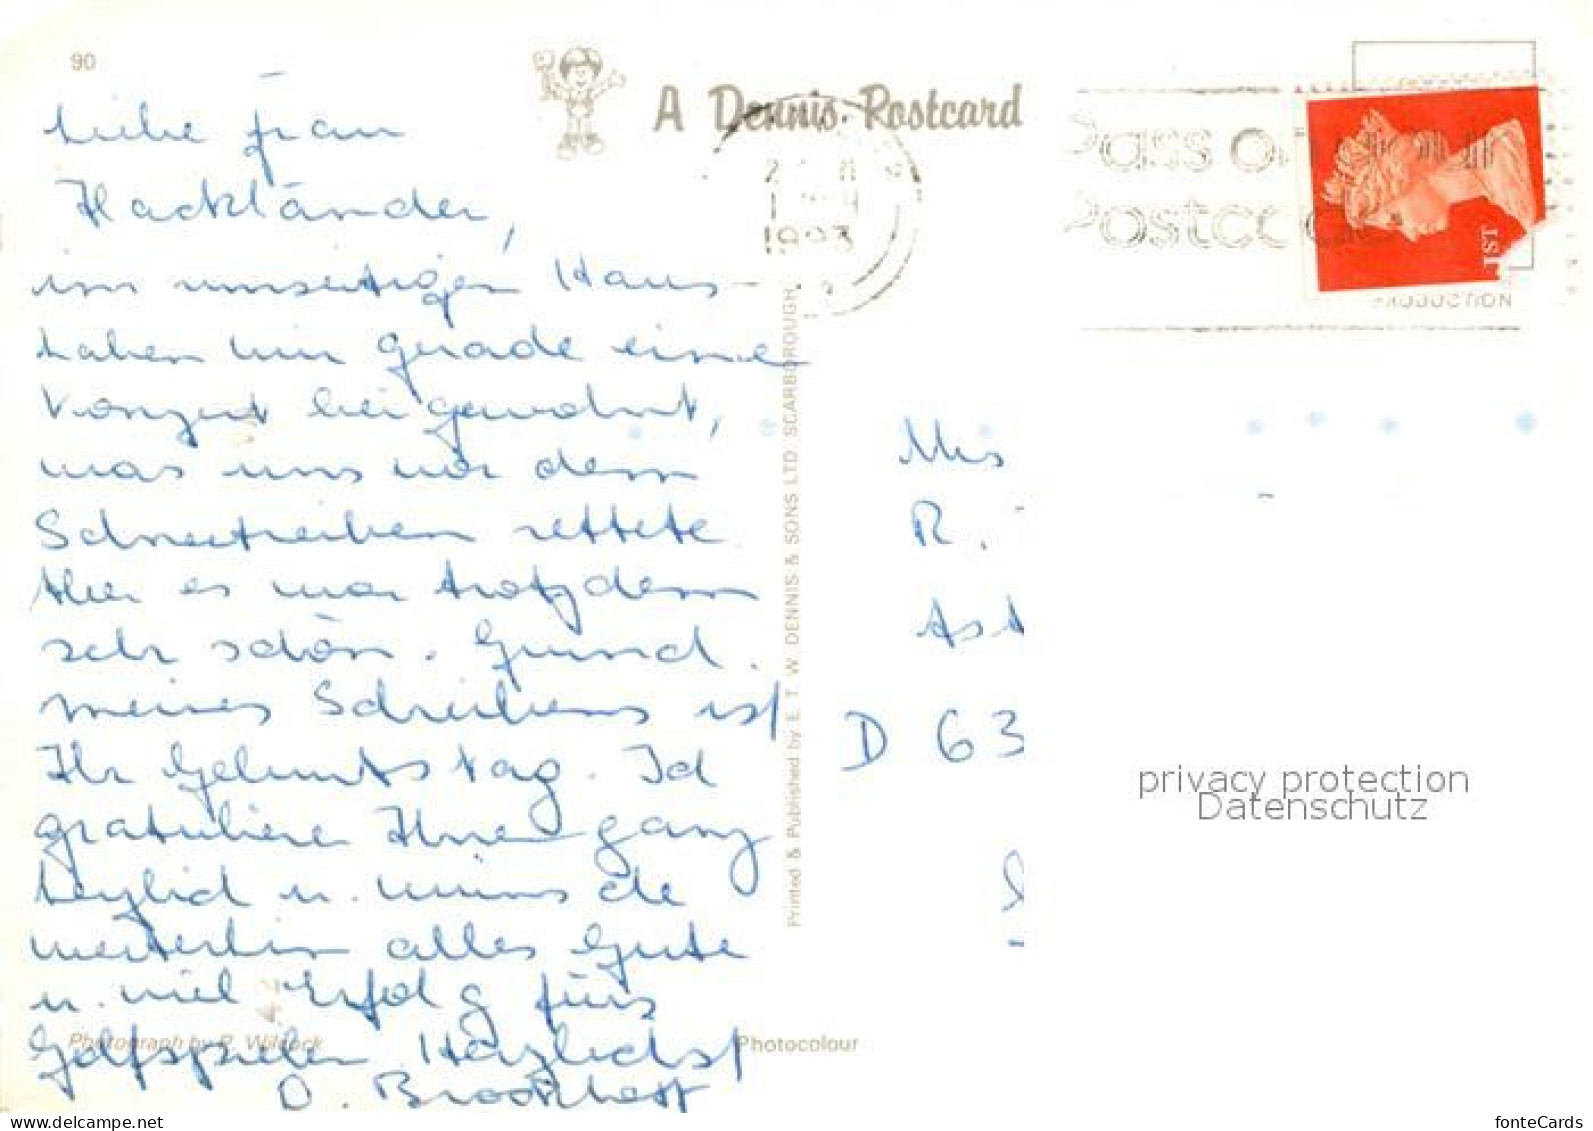 90
A Dennis Postcard
Liebe Frau
Hackländer,
im umseitigen Haus
haben wir gerade eine
Konzert beigewohnt,
was uns vor dem
Schneetreiben rettete
Aber es war trotzdem
sehr schön. Grund
meines Schreibens ist
Ihr Geburtstag. Ich
gratuliere Ihnen ganz
herzlich u. wünsche
weiterhin alles Gute
u. viel Erfolg fürs
Golfspielen. Herzlichst
D.
Photograph by P. Wilcock
Photocolour
Printed & Published by E. T. W. DENNIS & SONS LTD. SCARBOROUGH
1993
Pass on
Postcode
1ST
PRODUCTION
Mrs
R.
Ast
D 63
privacy protection
Datenschutz
fonteCards